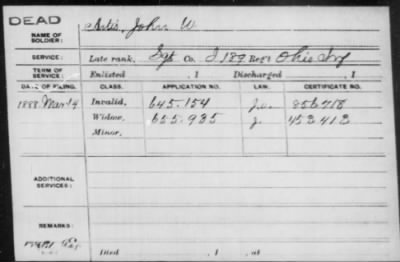 DEAD
NAME OF SOLDIER: Artis, John W.
SERVICE: Late rank, Sgt Co. I 189 Reg't Ohio Inf
TERM OF SERVICE: Enlisted , 1 Discharged , 1
DATE OF FILING. CLASS. APPLICATION NO. LAW. CERTIFICATE NO.
1888 Mar 14 Invalid, 645.154 856718
Widow, 655.985 453413
Minor,
ADDITIONAL SERVICES:
REMARKS:
Died , 1 , at